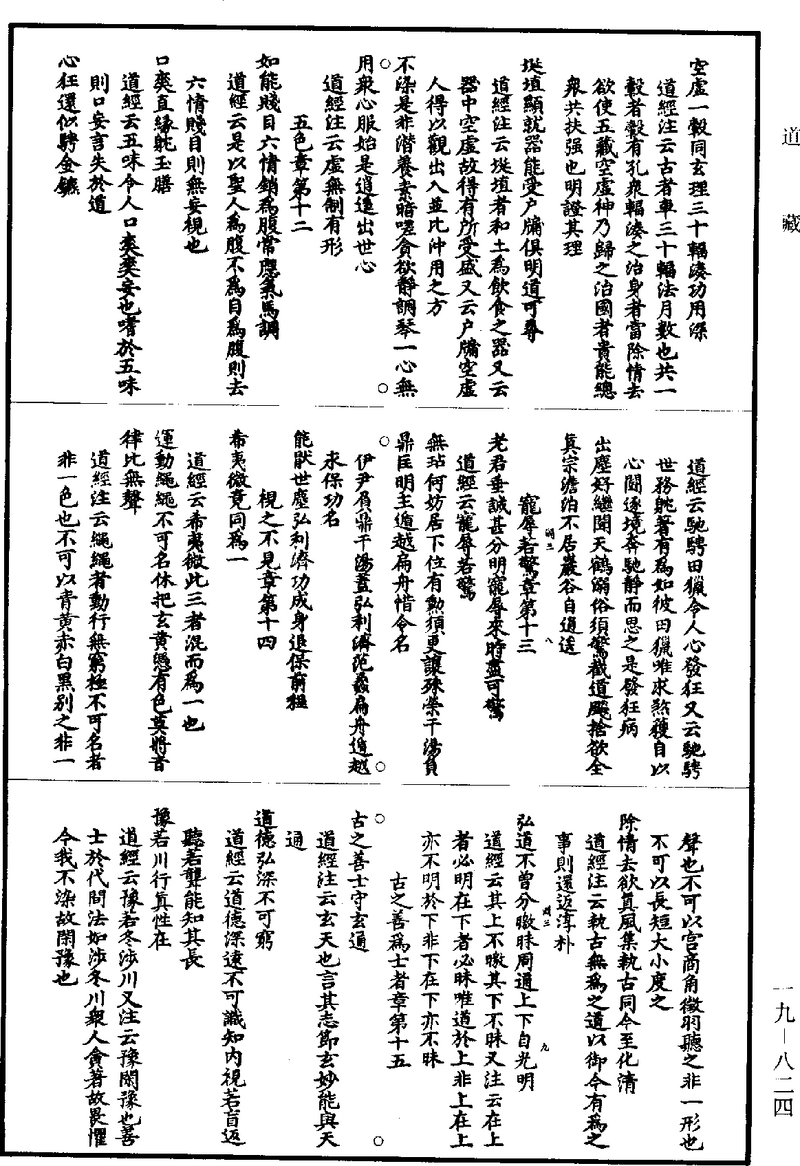 道藏
空虛一轂同玄理三十輻湊功用深
道經注云古者車三十輻法月數也共一
轂者轂有孔衆輻湊之治身者當除情去
欲使五藏空虛神乃歸之治國者貴能總
衆共扶强也明證其理
埏埴顯就器能受户牖俱明道可尊
道經注云埏埴者和土爲飲食之器又云
器中空虛故得有所受盛又云户牖空虛
人得以觀出入並比沖用之方
不染是非潜養素暗嗟貪欲靜調琴一心無
用衆心服始是逍遥出世心
道經注云虛無制有形
五色章第十二
如能賤目六情銷爲腹常應氣馬調
道經云是以聖人爲腹不爲目爲腹則去
六情賤目則無妄視也
口爽直緣躭玉膳
道經云五味令人口爽爽妄也嗜於五味
則口妄言失於道
心狂還似騁金鑣
道經云馳騁田獵令人心發狂又云馳騁
世務躭著有爲如彼田獵唯求煞獲自以
心鬪逐境奔馳靜而思之是發狂病
出塵好繼開天鶴溺俗須驚截道飈捨欲全
真宗澹泊不居巖谷自逍遥
寵辱若驚章第十三
老君垂誡甚分明寵辱來時盡可驚
道經云寵辱若驚
無玷何妨居下位有勲須更讓殊榮干湯負
鼎匡明主遁越扁舟惜令名
伊尹負鼎干湯蓋弘利濟范蠡扁舟遁越
求保功名
能猒世塵弘利濟功成身退保前程
視之不見章第十四
希夷微竟同爲一
道經云希夷微此三者混而爲一也
運動繩繩不可名休把玄黄憑有色莫將音
律比無聲
道經注云繩繩者動行無窮極不可名者
非一色也不可以青黄赤白黑别之非一
聲也不可以宫商角徵羽聽之非一形也
不可以長短大小度之
除情去欲真風集執古同今至化清
道經注云執古無爲之道以御今有爲之
事則還返淳朴
弘道不曾分皦昧周通上下自光明
道經云其上不皦其下不昧又注云在上
者必明在下者必昧唯道於上非上在上
亦不明於下非下在下亦不昧
古之善爲士者章第十五
古之善士守玄通
道經注云玄天也言其志節玄妙能與天
通
道德弘深不可窮
道經云道德深遠不可識知内視若盲返
聽若聾能知其長
豫若川行真性在
道經云豫若冬涉川又注云豫閑豫也善
士於代間法如涉冬川衆人貪著故畏懼
今我不染故閑豫也
一九—八二四